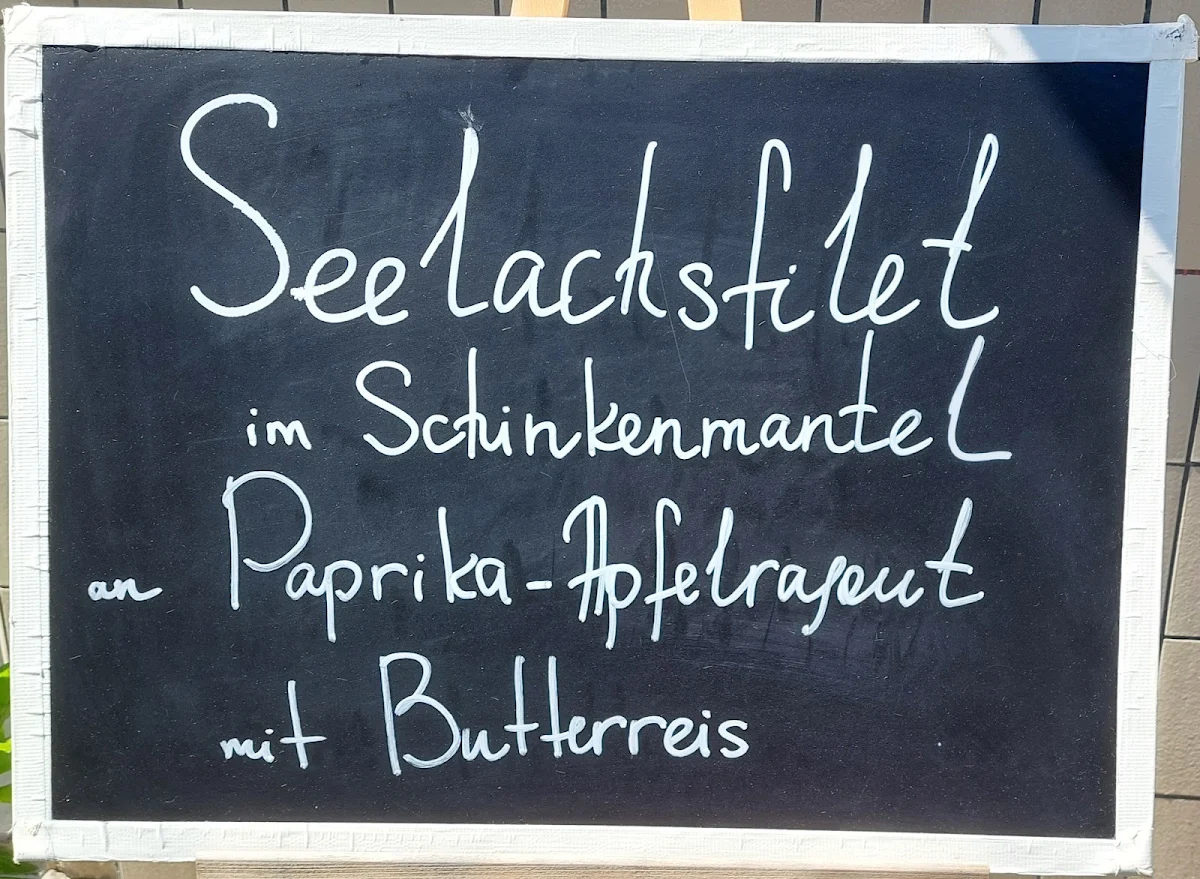 Seelachsfilet
im Schinkenmantel
an Paprika-Apfelragout
mit Butterreis